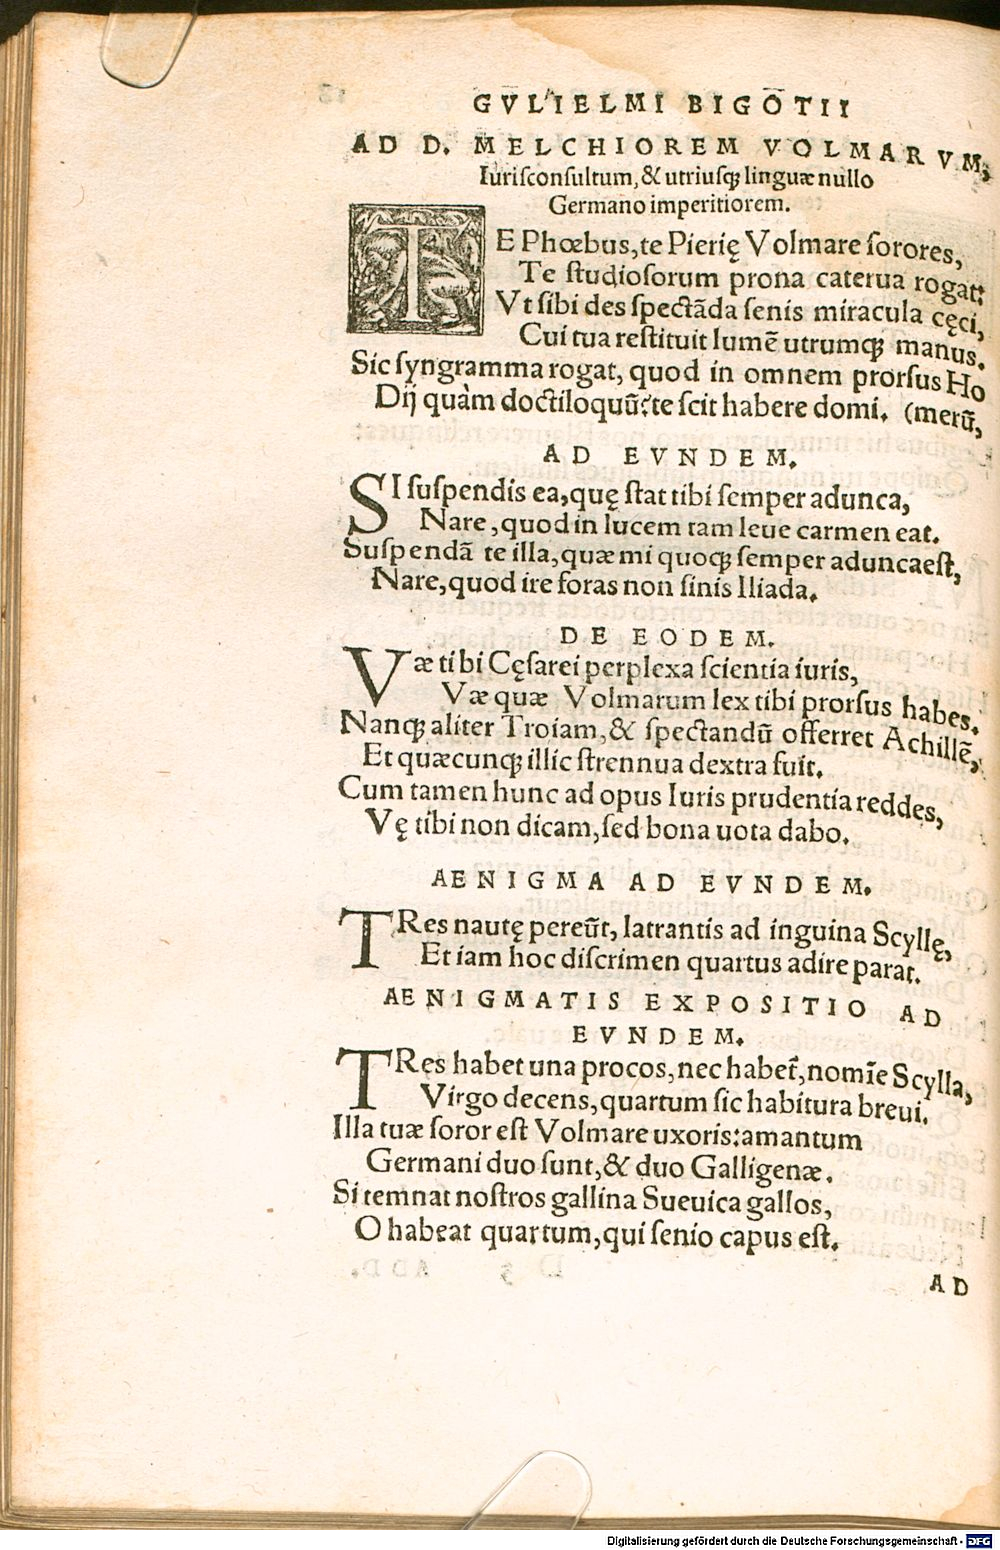 GVLIELMI BIGOTII
AD D. MELCHIOREM VOLMARVM,
Iurisconsultum, & utriusq; linguæ nullo
Germano imperitiorem.
TE Phœbus, te Pierię Volmare sorores,
Te studiosorum prona caterua rogat:
Vt sibi des spectãda senis miracula cęci,
Cui tua restituit lumẽ utrumq; manus.
Sic syngramma rogat, quod in omnem prorsus Ho
Dij quàm doctiloquũ? te scit habere domi. (merũ,
AD EVNDEM.
SI suspendis ea, quę stat tibi semper adunca,
Nare, quod in lucem tam leue carmen eat.
Suspendã te illa, quæ mi quoq; semper aduncaest,
Nare, quod ire foras non sinis Iliada.
DE EODEM.
Væ tibi Cęsarei perplexa scientia iuris,
Væ quæ Volmarum lex tibi prorsus habes.
Nanq; aliter Troiam, & spectandũ offerret Achillẽ,
Et quæcunq; illic strennua dextra fuit.
Cum tamen hunc ad opus Iuris prudentia reddes,
Vę tibi non dicam, sed bona uota dabo.
AENIGMA AD EVNDEM.
TRes nautę pereũt, latrantis ad inguina Scyllę,
Et iam hoc discrimen quartus adire parat.
AENIGMATIS EXPOSITIO AD
EVNDEM.
TRes habet una procos, nec habet̃, nomĩe Scylla,
Virgo decens, quartum sic habitura breui.
Illa tuæ soror est Volmare uxoris: amantum
Germani duo sunt, & duo Galligenæ.
Si temnat nostros gallina Sueuica gallos,
O habeat quartum, qui senio capus est.
AD
Digitalisierung gefördert durch die Deutsche Forschungsgemeinschaft - DFG